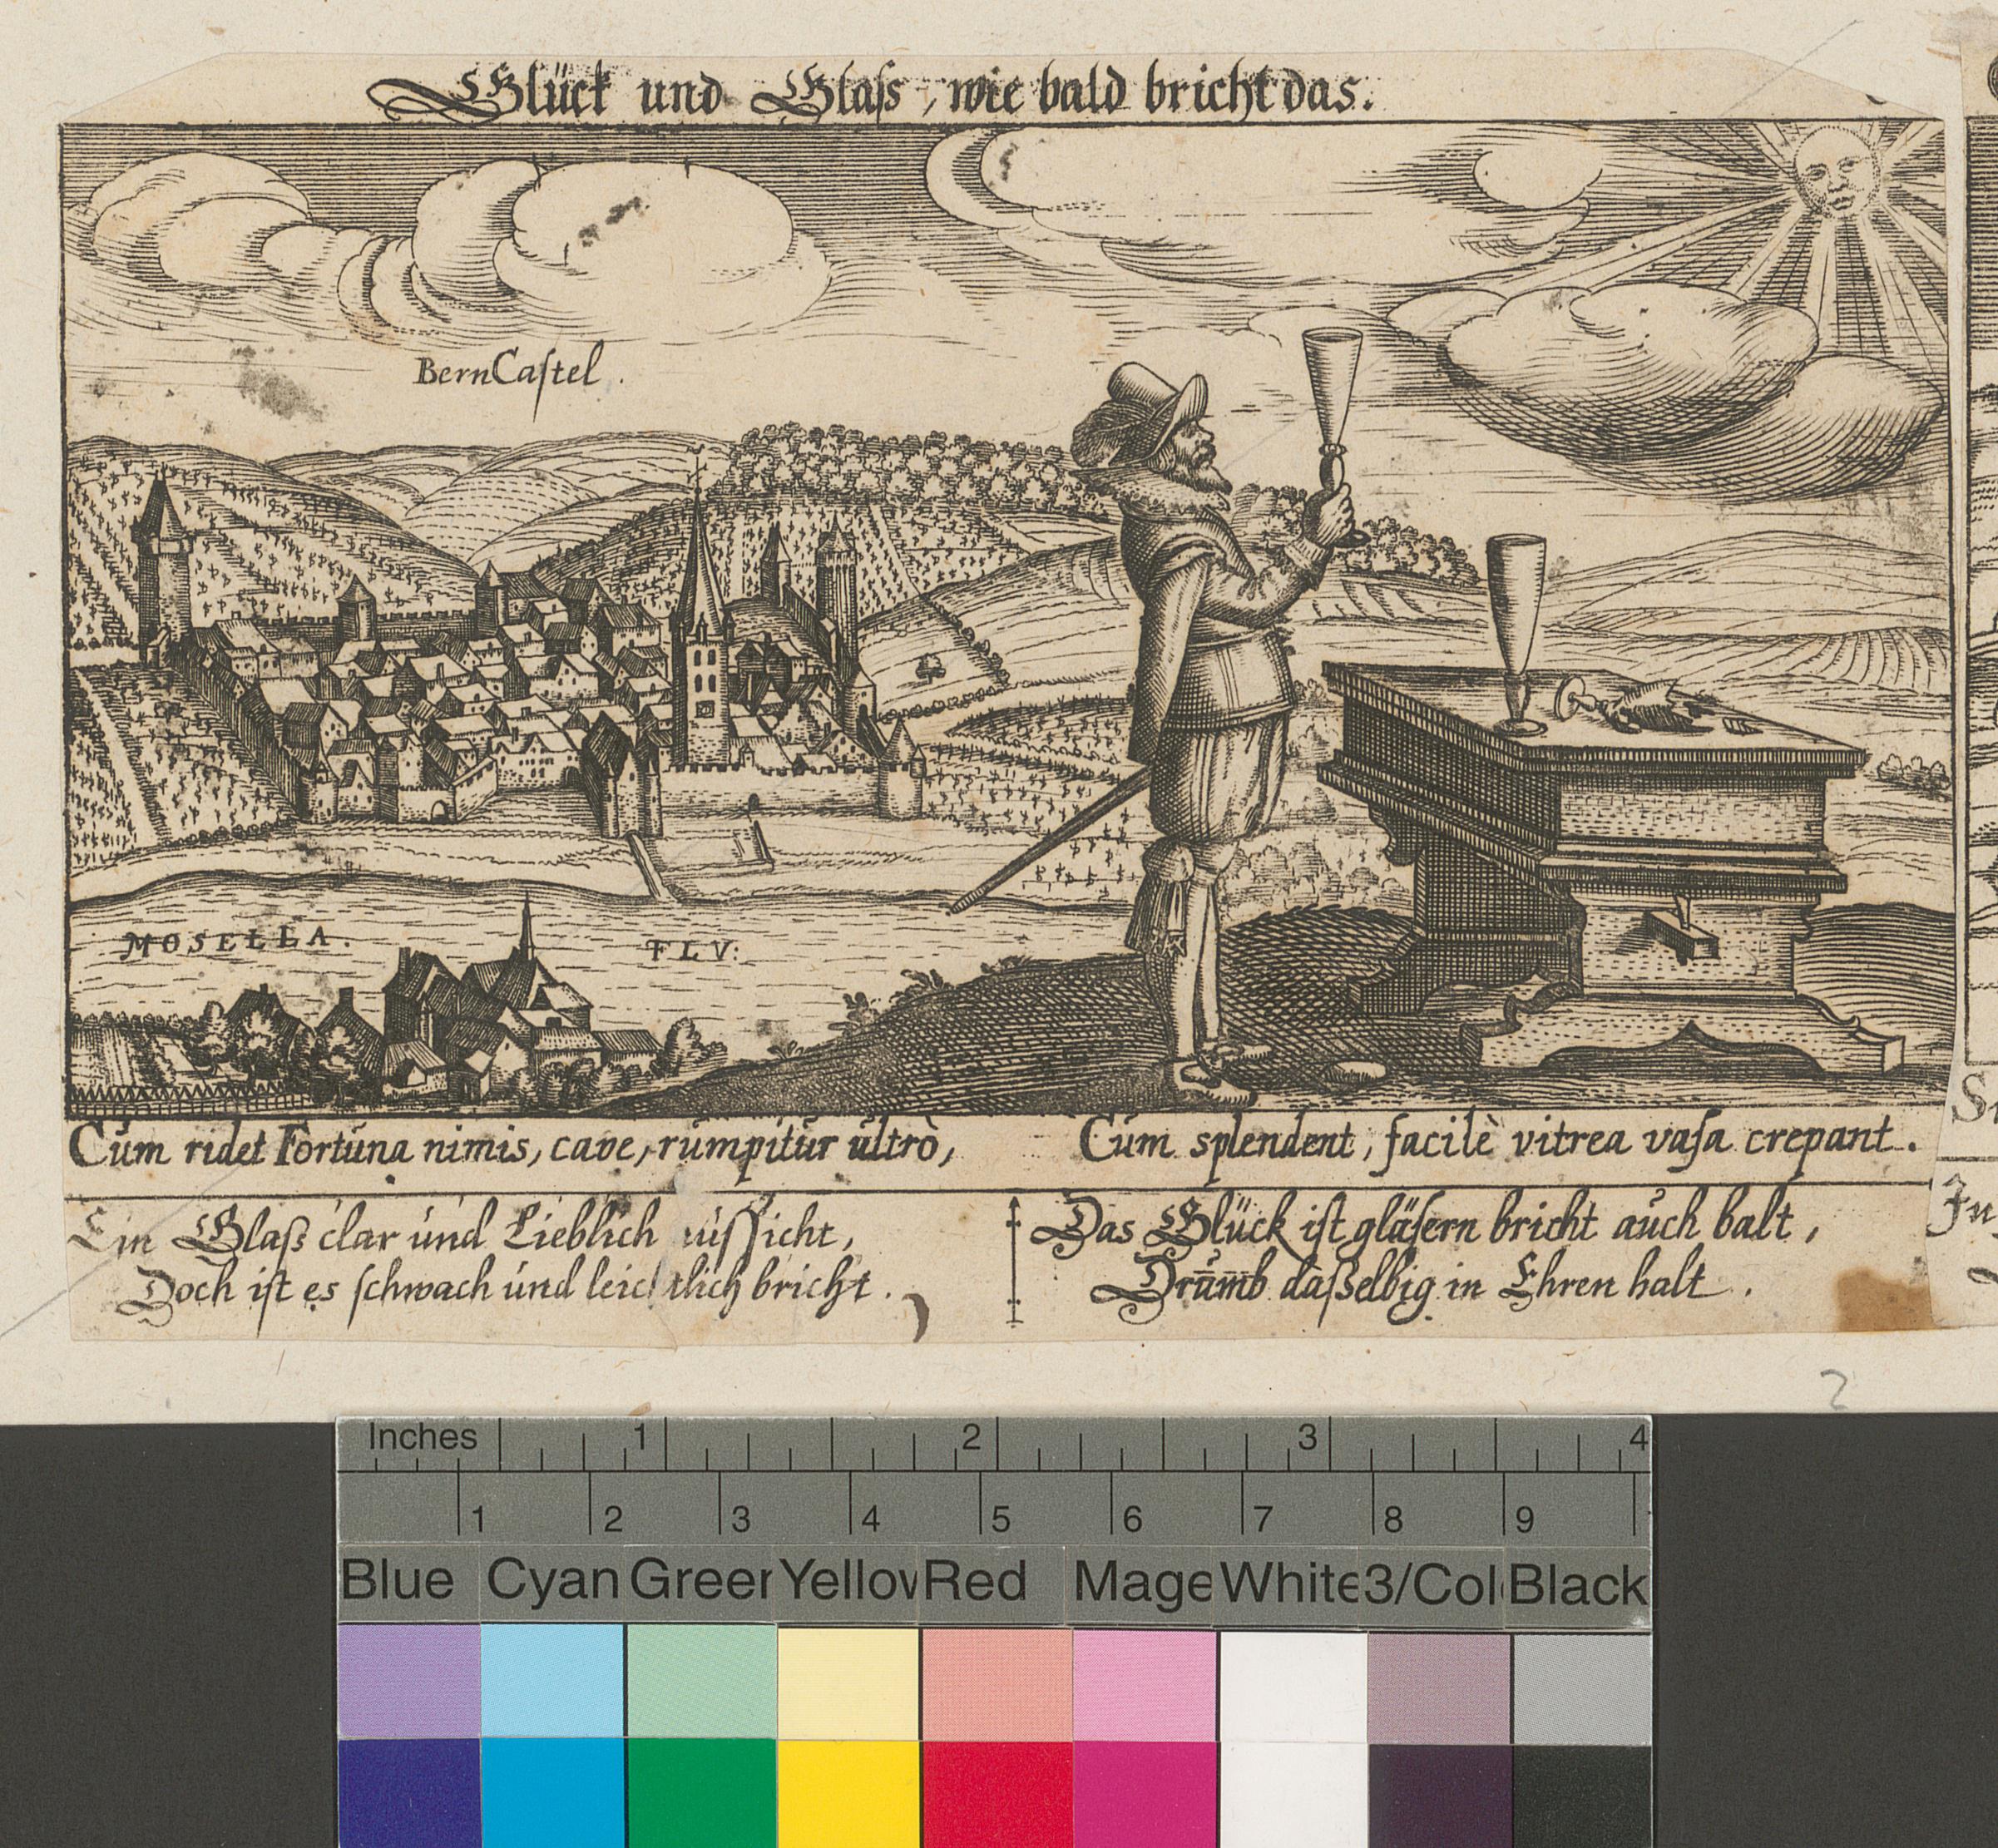 Glück und Glaſs, wie bald bricht das.
BernCaſtel.
MOSELLA. FLV:
Cum ridet Fortuna nimis, cave, rumpitur ultrò,
Cum splendent, facilè vitrea vaſa crepant.
Ein Glaß clar und Lieblich ſicht,
Doch iſt es ſchwach und leichtlich bricht.
Das Glück iſt gläſern bricht auch balt,
Drumb daſſelbig in Ehren halt.
2
Inches 1 2 3 4
1 2 3 4 5 6 7 8 9
Blue Cyan Green Yellow Red Mage White 3/Col Black